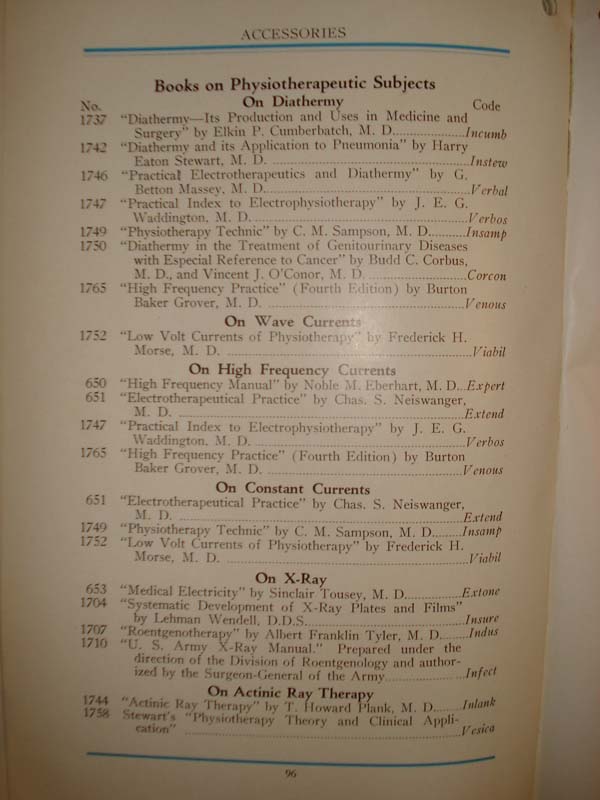 ACCESSORIES
Books on Physiotherapeutic Subjects
On Diathermy
No. Code
1737 “Diathermy—Its Production and Uses in Medicine and
Surgery” by Elkin P. Cumberbatch, M. D. Incumb
1742 “Diathermy and its Application to Pneumonia” by Harry
Eaton Stewart, M. D. Instew
1746 “Practical Electrotherapeutics and Diathermy” by G.
Betton Massey, M. D. Verbal
1747 “Practical Index to Electrophysiotherapy” by J. E. G.
Waddington, M. D. Verbos
1749 “Physiotherapy Technic” by C. M. Sampson, M. D. Insamp
1750 “Diathermy in the Treatment of Genitourinary Diseases
with Especial Reference to Cancer” by Budd C. Corbus,
M. D., and Vincent J. O'Conor, M. D. Corcon
1765 “High Frequency Practice” (Fourth Edition) by Burton
Baker Grover, M. D. Venous
On Wave Currents
1752 “Low Volt Currents of Physiotherapy” by Frederick H.
Morse, M. D. Viabil
On High Frequency Currents
650 “High Frequency Manual” by Noble M. Eberhart, M. D. Expert
651 “Electrotherapeutical Practice” by Chas. S. Neiswanger,
M. D. Extend
1747 “Practical Index to Electrophysiotherapy” by J. E. G.
Waddington, M. D. Verbos
1765 “High Frequency Practice” (Fourth Edition) by Burton
Baker Grover, M. D. Venous
On Constant Currents
651 “Electrotherapeutical Practice” by Chas. S. Neiswanger,
M. D. Extend
1749 “Physiotherapy Technic” by C. M. Sampson, M. D. Insamp
1752 “Low Volt Currents of Physiotherapy” by Frederick H.
Morse, M. D. Viabil
On X-Ray
653 “Medical Electricity” by Sinclair Tousey, M. D. Extone
1704 “Systematic Development of X-Ray Plates and Films”
by Lehman Wendell, D.D.S. Insure
1707 “Roentgenotherapy” by Albert Franklin Tyler, M. D. Indus
1710 “U. S. Army X-Ray Manual.” Prepared under the
direction of the Division of Roentgenology and author-
ized by the Surgeon-General of the Army Infect
On Actinic Ray Therapy
1744 “Actinic Ray Therapy” by T. Howard Plank, M. D. Inlank
1758 Stewart's “Physiotherapy Theory and Clinical Appli-
cation” Vesica
96